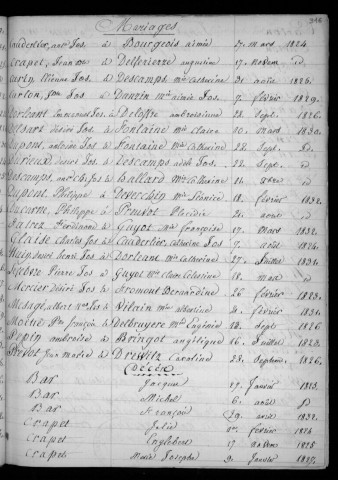 Mariages
Cauderlier, ant. Jos à Bourgeois aimée 31 mars 1824.
Crapet, Jean à Delferierre augustine 17 novem. id.
Curly Etienne Jos. à Descamps mie Catherine 31 août 1826.
Carton, Jos à Danvin mie aimée Jos. 7 février 1829.
Dorleant à Deloffre ambroisinne 28 Sept. 1826.
Delsart désiré Jos. à Fontaine mie Claire 10 mars 1830.
Dupont, antoine Jos à Fontaine mie Catherine 22 Sept. id.
Durieux désiré Jos. à Descamps Jos. 22 Sept. id.
Descamps, Jos à Dallard mie Catherine 14 8bre id.
Dupont Philippe à Deverchin mie 18 février 1832.
Ducarne, Philippe à Pruvot 21 août id.
Ferdinand à Gayot mie françoise 17 mars 1832.
Glaise Charles Jos à Cauderlier, Catherine Jos 7 août 1824.
henri Jos à Dorleans mie Catherine 27 Juillet 1834.
Pierre Jos à Gayot mie Claire Celestine 18 mars id
Mercier désiré Jos à Fromont Bernardine 26 février 1823.
albert Jos à Vilain mie albertine 2 février 1832.
Pre françois à Delbruyere mie Eugénie 28 Sept 1826
Pepin ambroise à Bringot angélique 16 Juillet 1823.
Pruvot Jean Marie à Drewitz Caroline 28 Septem. 1826.
Décès
Bar Jacques 17 Janvier 1823.
Bar Michel 6 août id
Bar françois 29 avril 1832.
Crapet Julie février 1823
Crapet Englebert 17 novem 1825
Crapet Marie Josephe 9 Janvier 1827.